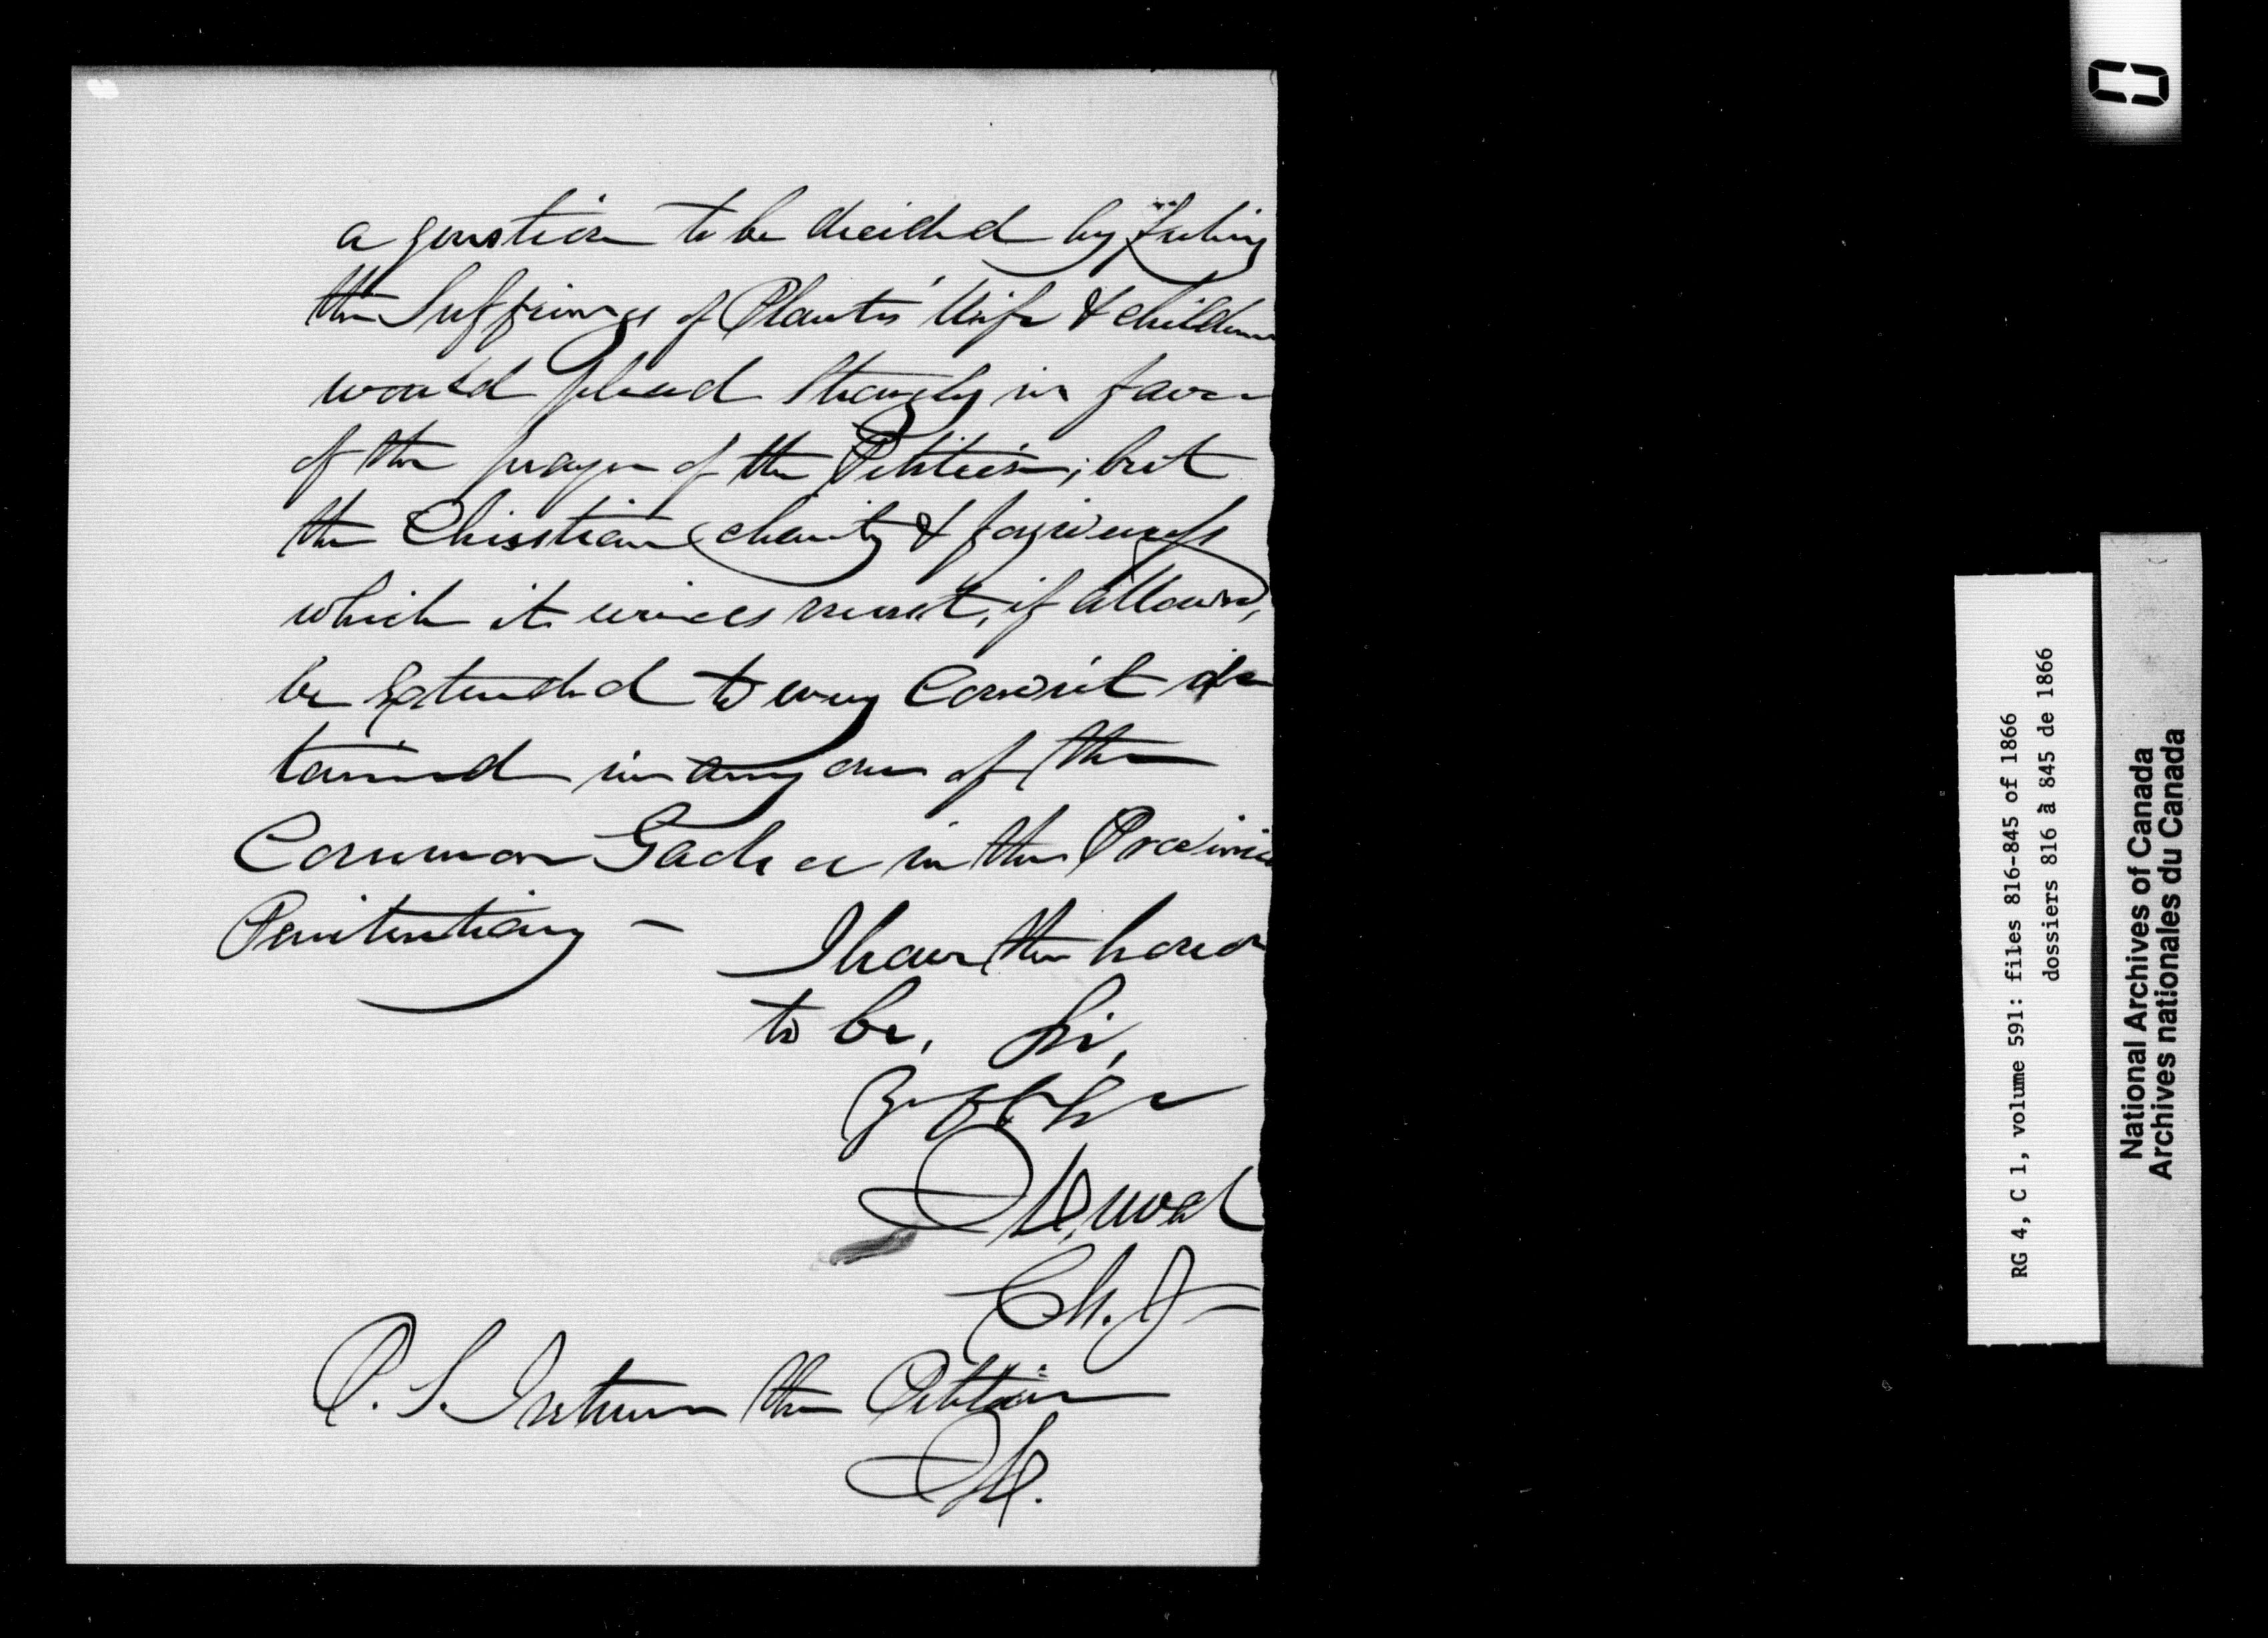 a question to be decided by feeling
the Sufferings of Plante's Wife & children
would plead strongly in favor
of the prayer of the Petition; but
the Christian charity & forgiveness
which it invokes must, if allowed,
be Extended to every Convict de
tained in any one of the
Common Gaols or in the Provincial
Penitentiary –
I have the honor
to be, Sir,
Duval
Ch. J–
P. S. I return the Petition
D.
RG 4, C 1, volume 591: files 816-845 of 1866
dossiers 816 à 845 de 1866
National Archives of Canada
Archives nationales du Canada